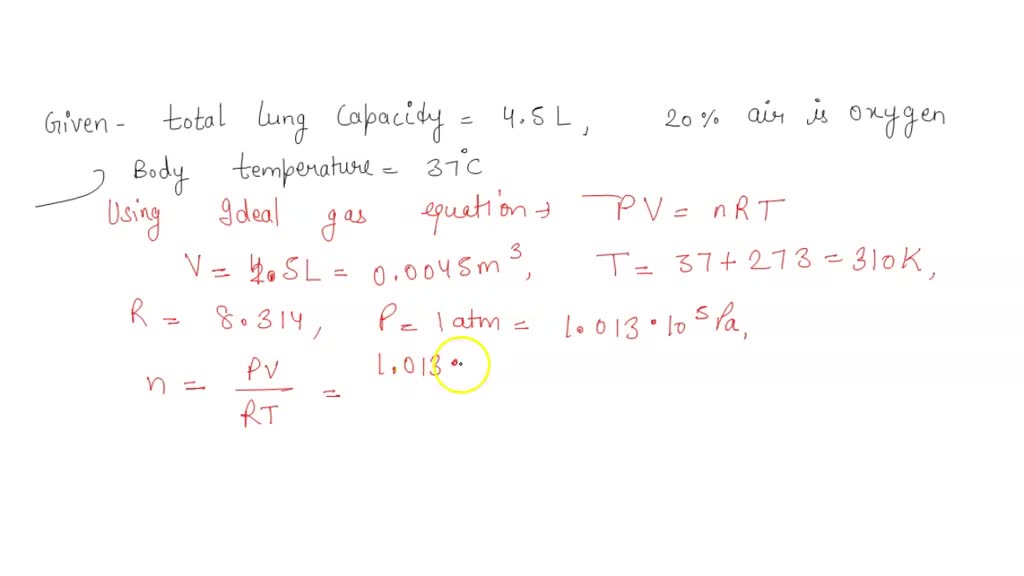 Given - total lung capacity = 4.5L, 20% air is oxygen
Body temperature = 37°C
Using Ideal gas equation → PV = nRT
V = 4.5L = 0.0045m³, T = 37+273 = 310K,
R = 8.314, P = 1 atm = 1.013·10⁵ Pa,
n = PV/RT = 1.013·